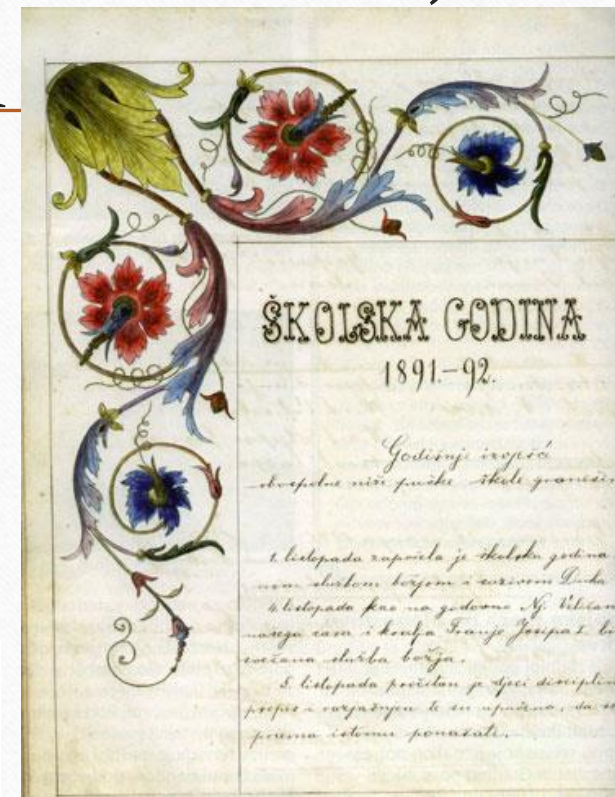 ŠKOLSKA GODINA
1891-92.
Godišnji izvješće
obospolne niže pučke škole
1. listopada započela je školska godina
službom božjom i zazivom Duha
4. listopada kao na godovno Nj. Veličan
našega cara i kralja Franje Josipa I. bi
svečana služba božja.
5. listopada pročitan je djeci disciplin
propis i razjašnjen te su upućena, da se
prema istomu ponašati.